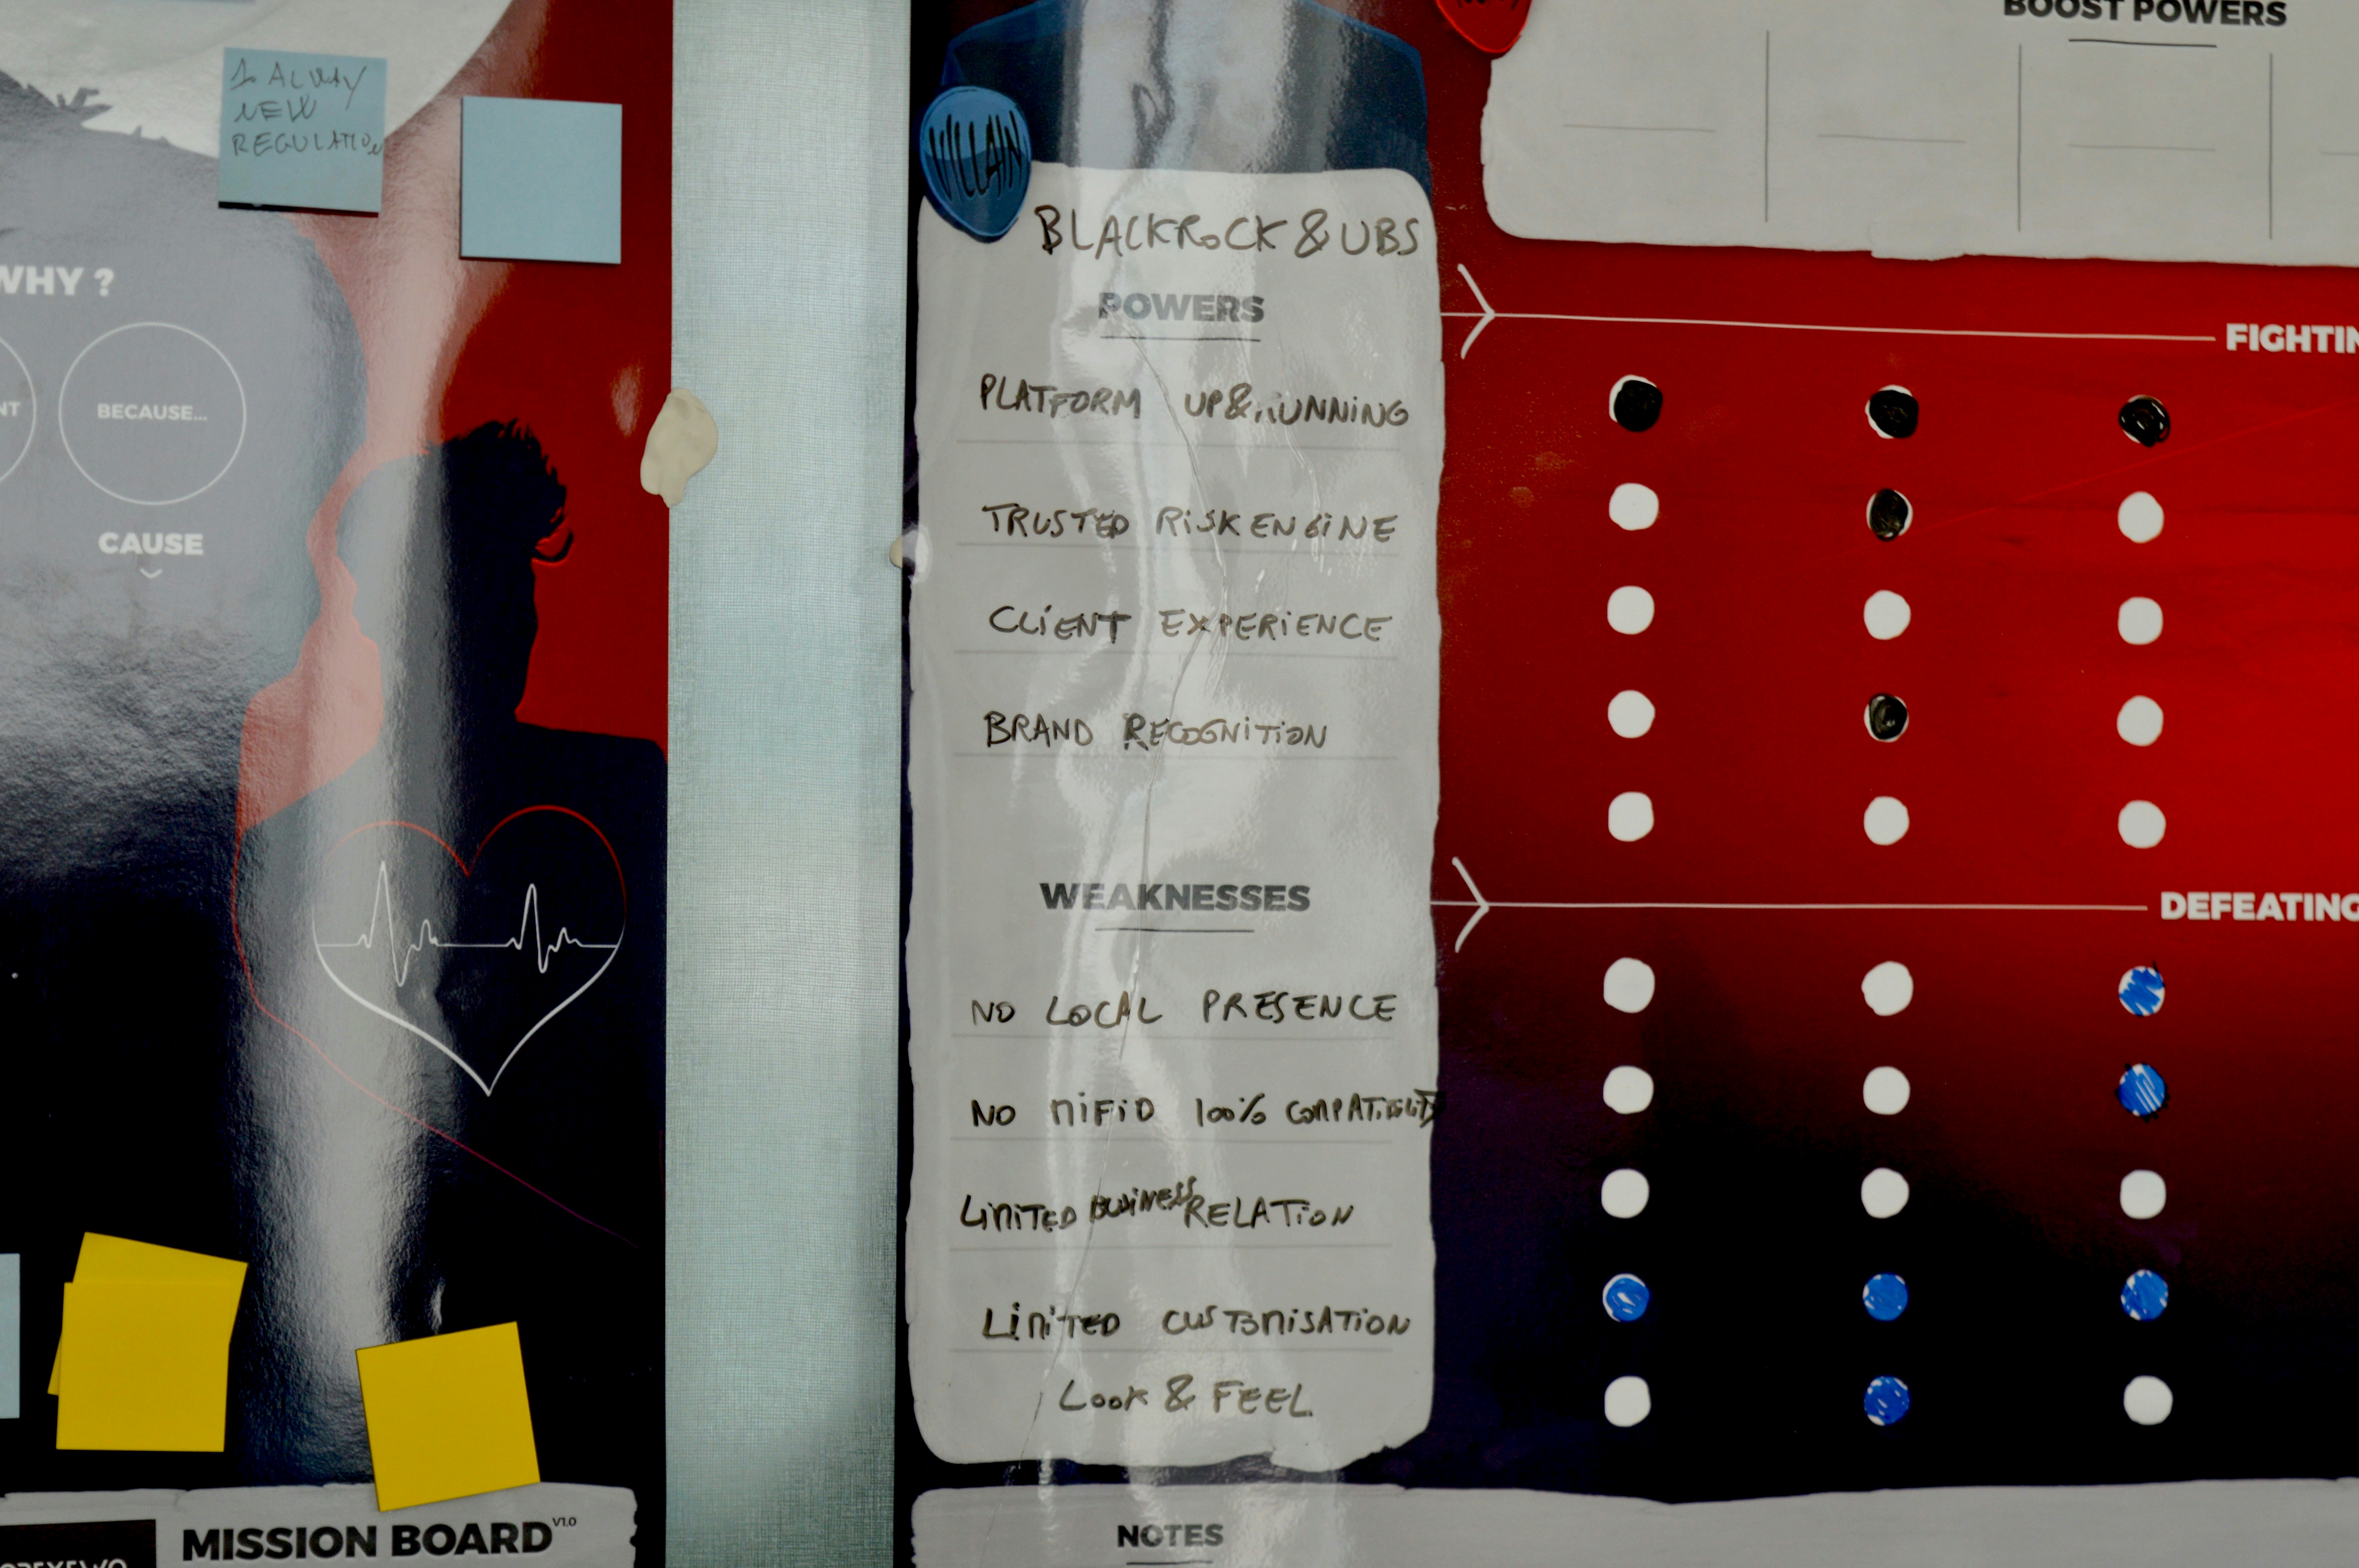 1. ALWAY
NEW
REGULATION
WHY ?
NT
BECAUSE...
CAUSE
MISSION BOARD V1.0
VILLAIN
BLACKROCK & UBS
POWERS
PLATFORM UP & RUNNING
TRUSTED RISK ENGINE
CLIENT EXPERIENCE
BRAND RECOGNITION
WEAKNESSES
NO LOCAL PRESENCE
NO MIFID 100% COMPATIBILITY
LIMITED BUSINESS RELATION
LIMITED CUSTOMISATION
LOOK & FEEL
NOTES
BOOST POWERS
FIGHTIN
DEFEATING